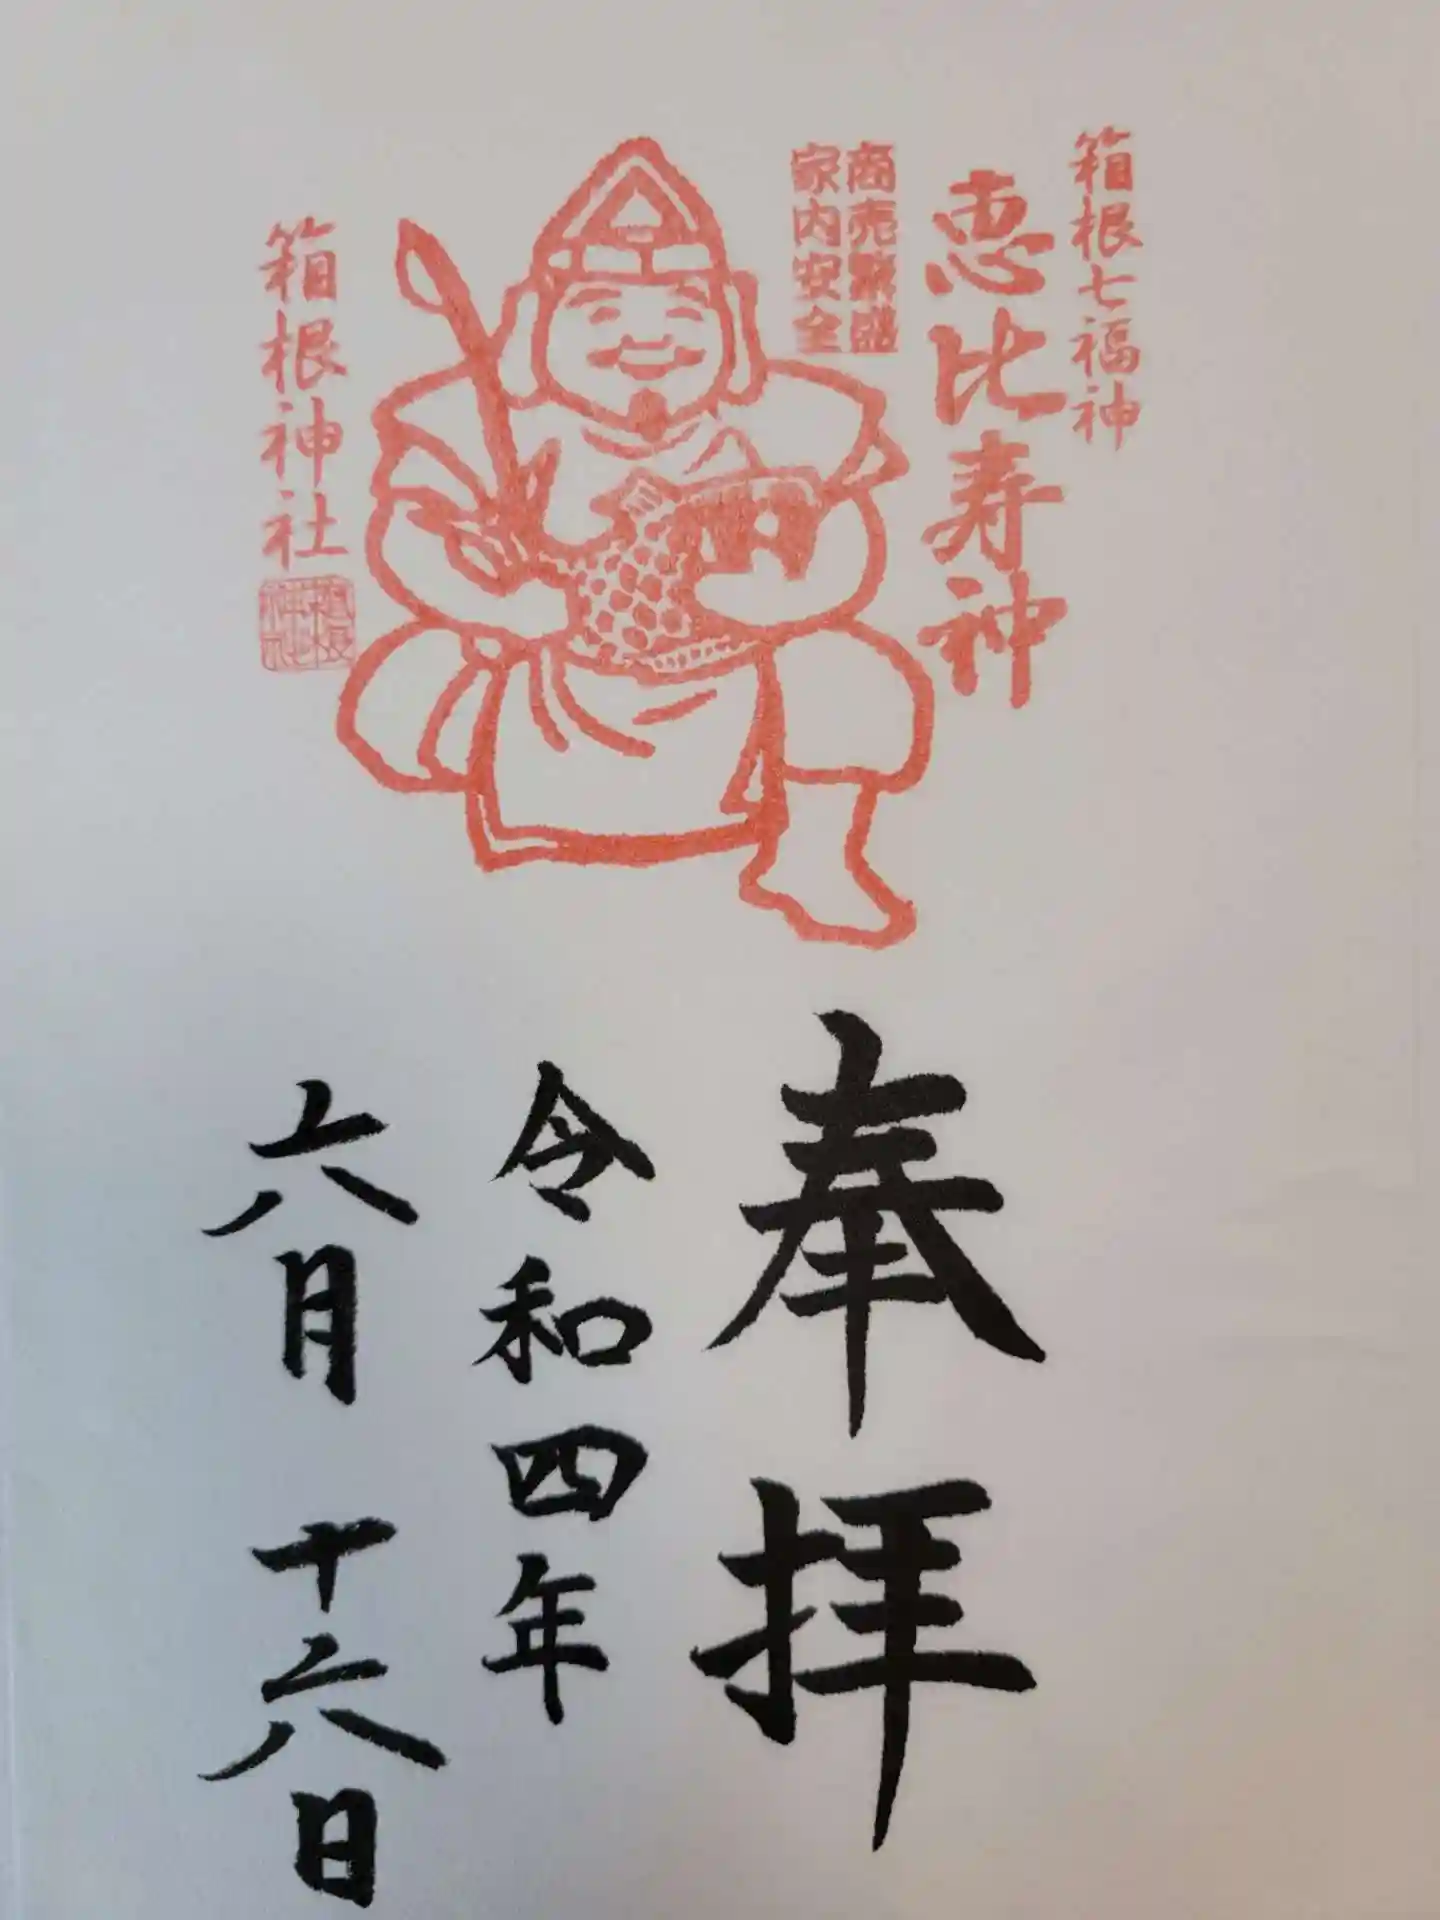 箱根七福神
恵比寿神
商売繁盛
家内安全
箱根神社
奉拝
令和四年
六月十六日